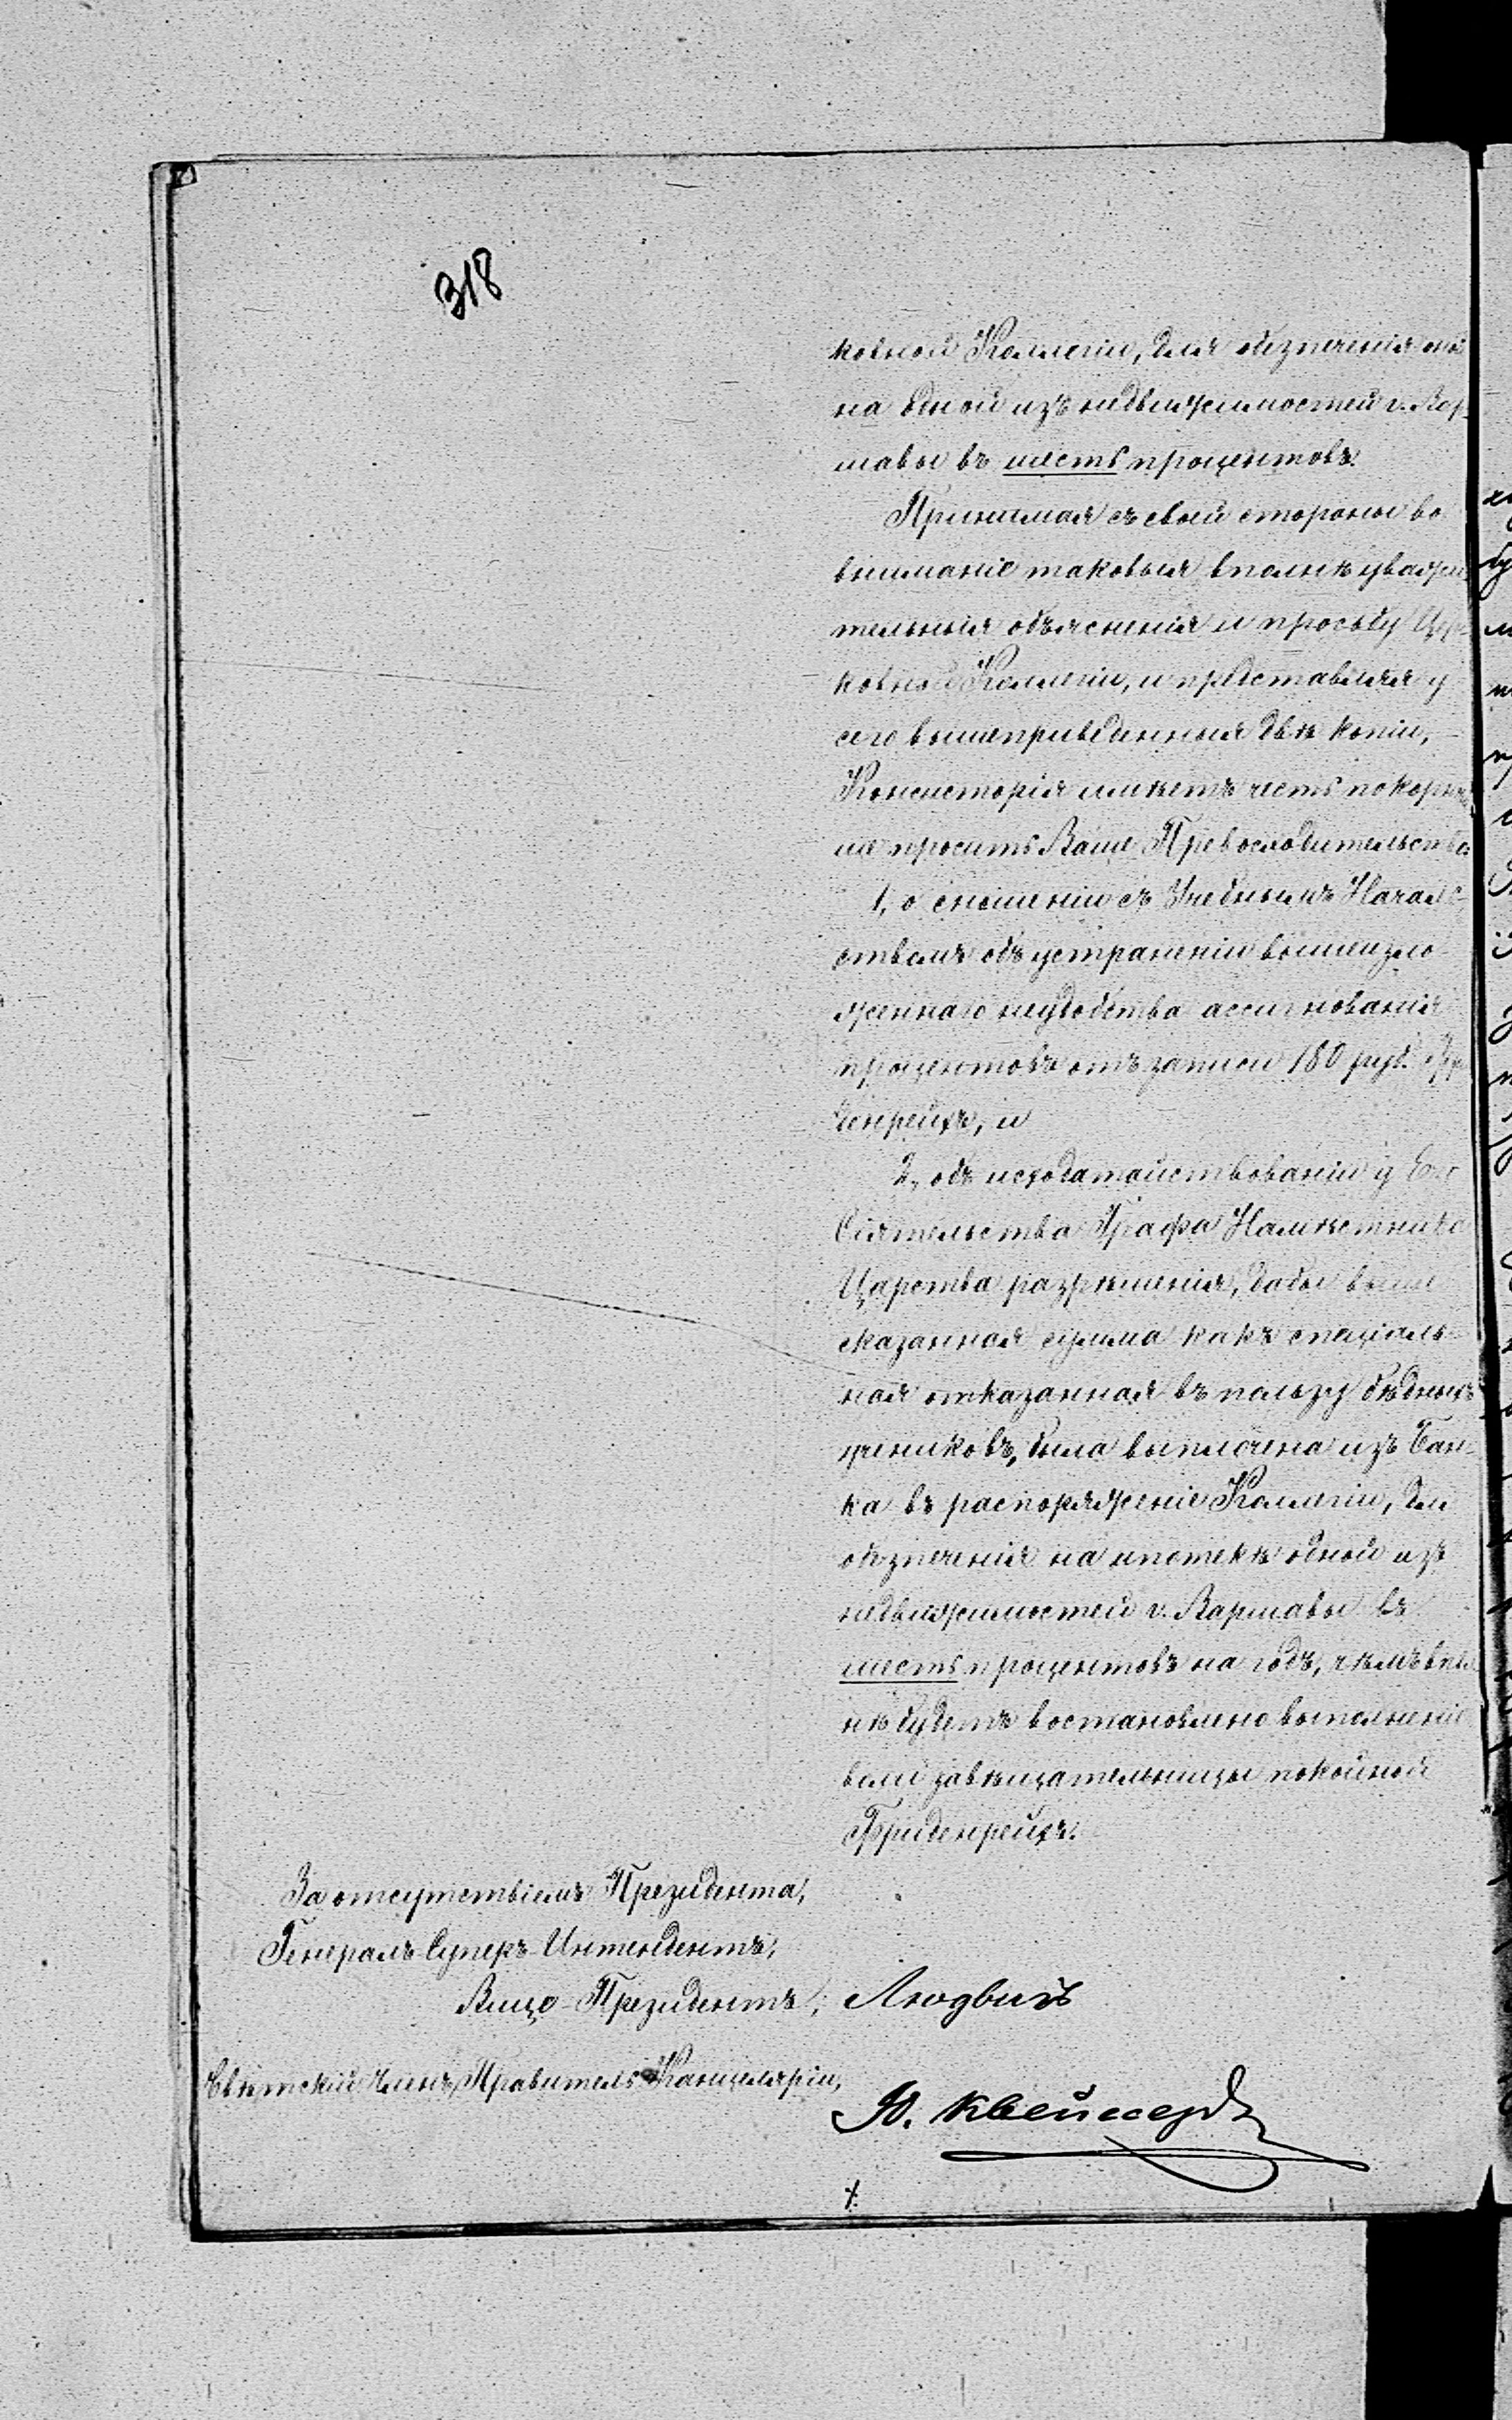 318
ковной Коллегіи, для обезпеченія оной
на одной изъ недвижимостей г. Вар-
шавы въ шесть процентовъ.
Принимая съ своей стороны во
вниманіе таковыя вполнѣ уважи-
тельныя объясненія и просьбу Цер-
ковной Коллегіи, и представляя у
сего вышеприведенныя двѣ копіи,
Консисторія имѣетъ честь покорнѣй-
ше просить Ваше Превосходительство
1, о сношеніи съ Учебнымъ Началь-
ствомъ объ устраненіи вышеизло-
женнаго неудобства ассигнованія
процентовъ отъ записи 180 руб. Фри-
денрейхъ, и
2, объ исходатайствованіи у Его
Сіятельства Графа Намѣстника
Царства разрѣшенія, дабы выше
сказанная сумма какъ спеціаль-
ная отказанная въ пользу бѣдныхъ
учениковъ, была выплочена изъ Бан-
ка въ распоряженіе Коллегіи, для
обезпеченія на ипотекѣ одной изъ
недвижимостей г. Варшавы въ
шесть процентовъ на годъ, чѣмъ впол-
нѣ будетъ востановлено выполненіе
воли завѣщательницы покойной
Фриденрейхъ.
За отсутствіемъ Президента,
Генералъ Суперъ-Интендентъ,
Вице-Президентъ, Людвигъ
Свѣтскій Членъ, Правитель Канцеляріи,
Ю. Квейссеръ